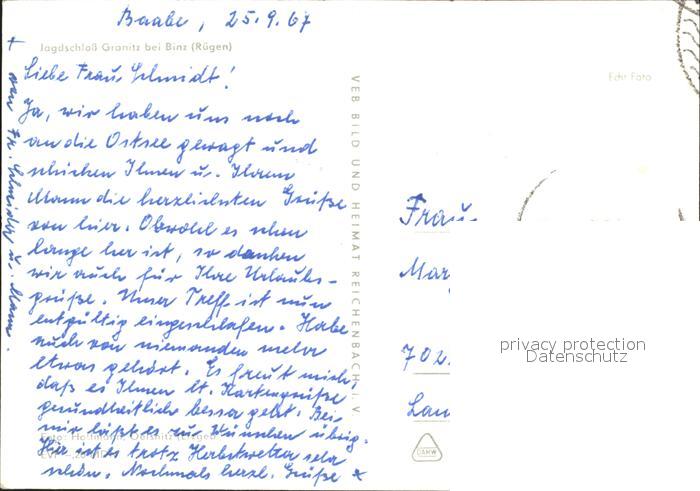 Baabe, 25.9.67
Jagdschloß Granitz bei Binz (Rügen)
Liebe Frau Schmidt!
Ja, wir haben uns noch
an die Ostsee gewagt und
schicken Ihnen u. Ihrem
Mann die herzlichsten Grüße
von hier. Obwohl es schon
lange her ist, so danken
wir auch für Ihre Urlaubs-
grüße. Unser Treff ist nun
entgültig eingeschlafen. Habe
auch von niemanden mehr
etwas gehört. Es freut mich,
daß es Ihnen lt. Kartengrüße
gesundheitlich besser geht. Bei
mir läßt es zu Wünschen übrig.
Hier ist es trotz Herbstwetter sehr
schön. Nochmals herzl. Grüße *
+ von Fr. Schneider u. Mann.
VEB BILD UND HEIMAT REICHENBACH I. V.
Echt Foto
Frau
Mar
702
privacy protection
Datenschutz
DAMW